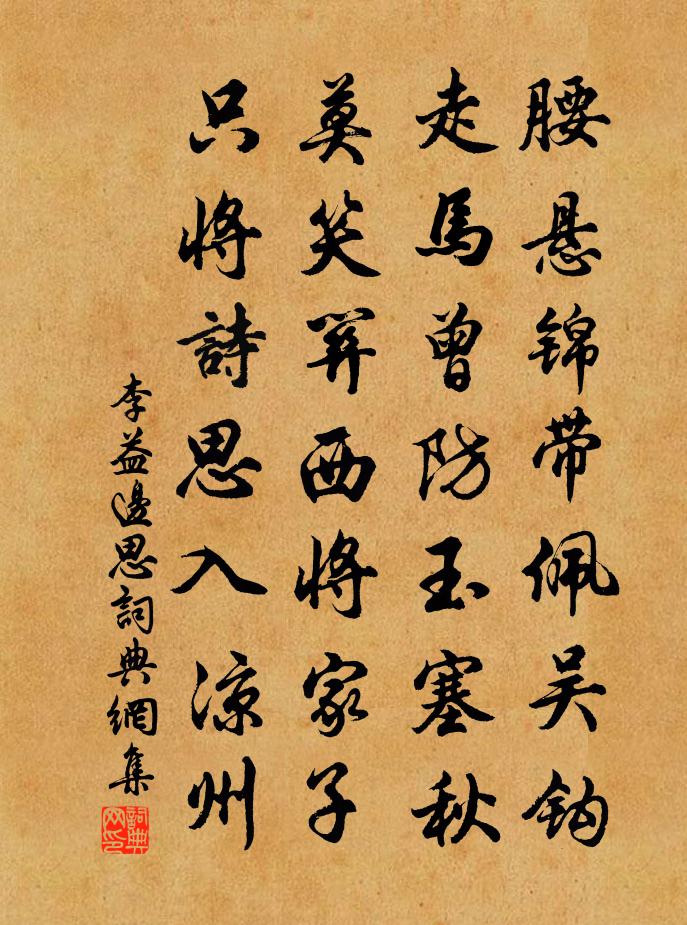 腰悬锦带佩吴钩
走馬曾防玉塞秋
莫笑关西将家子
只将詩思入涼州
李益邊思詞典網集
詞典网印